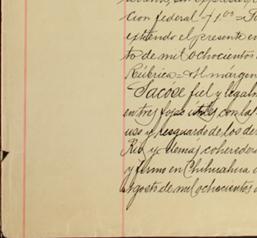 cion federal 71
extiendo el presente en
to de mil ochocientos
Rúbrica = Al margen
Sacóse fiel y legalm
en tres fojas utiles con las
uso y resguardo de los de
Rio y demas coheredero
y firmo en Chihuahua á
Agosto de mil ochocientos